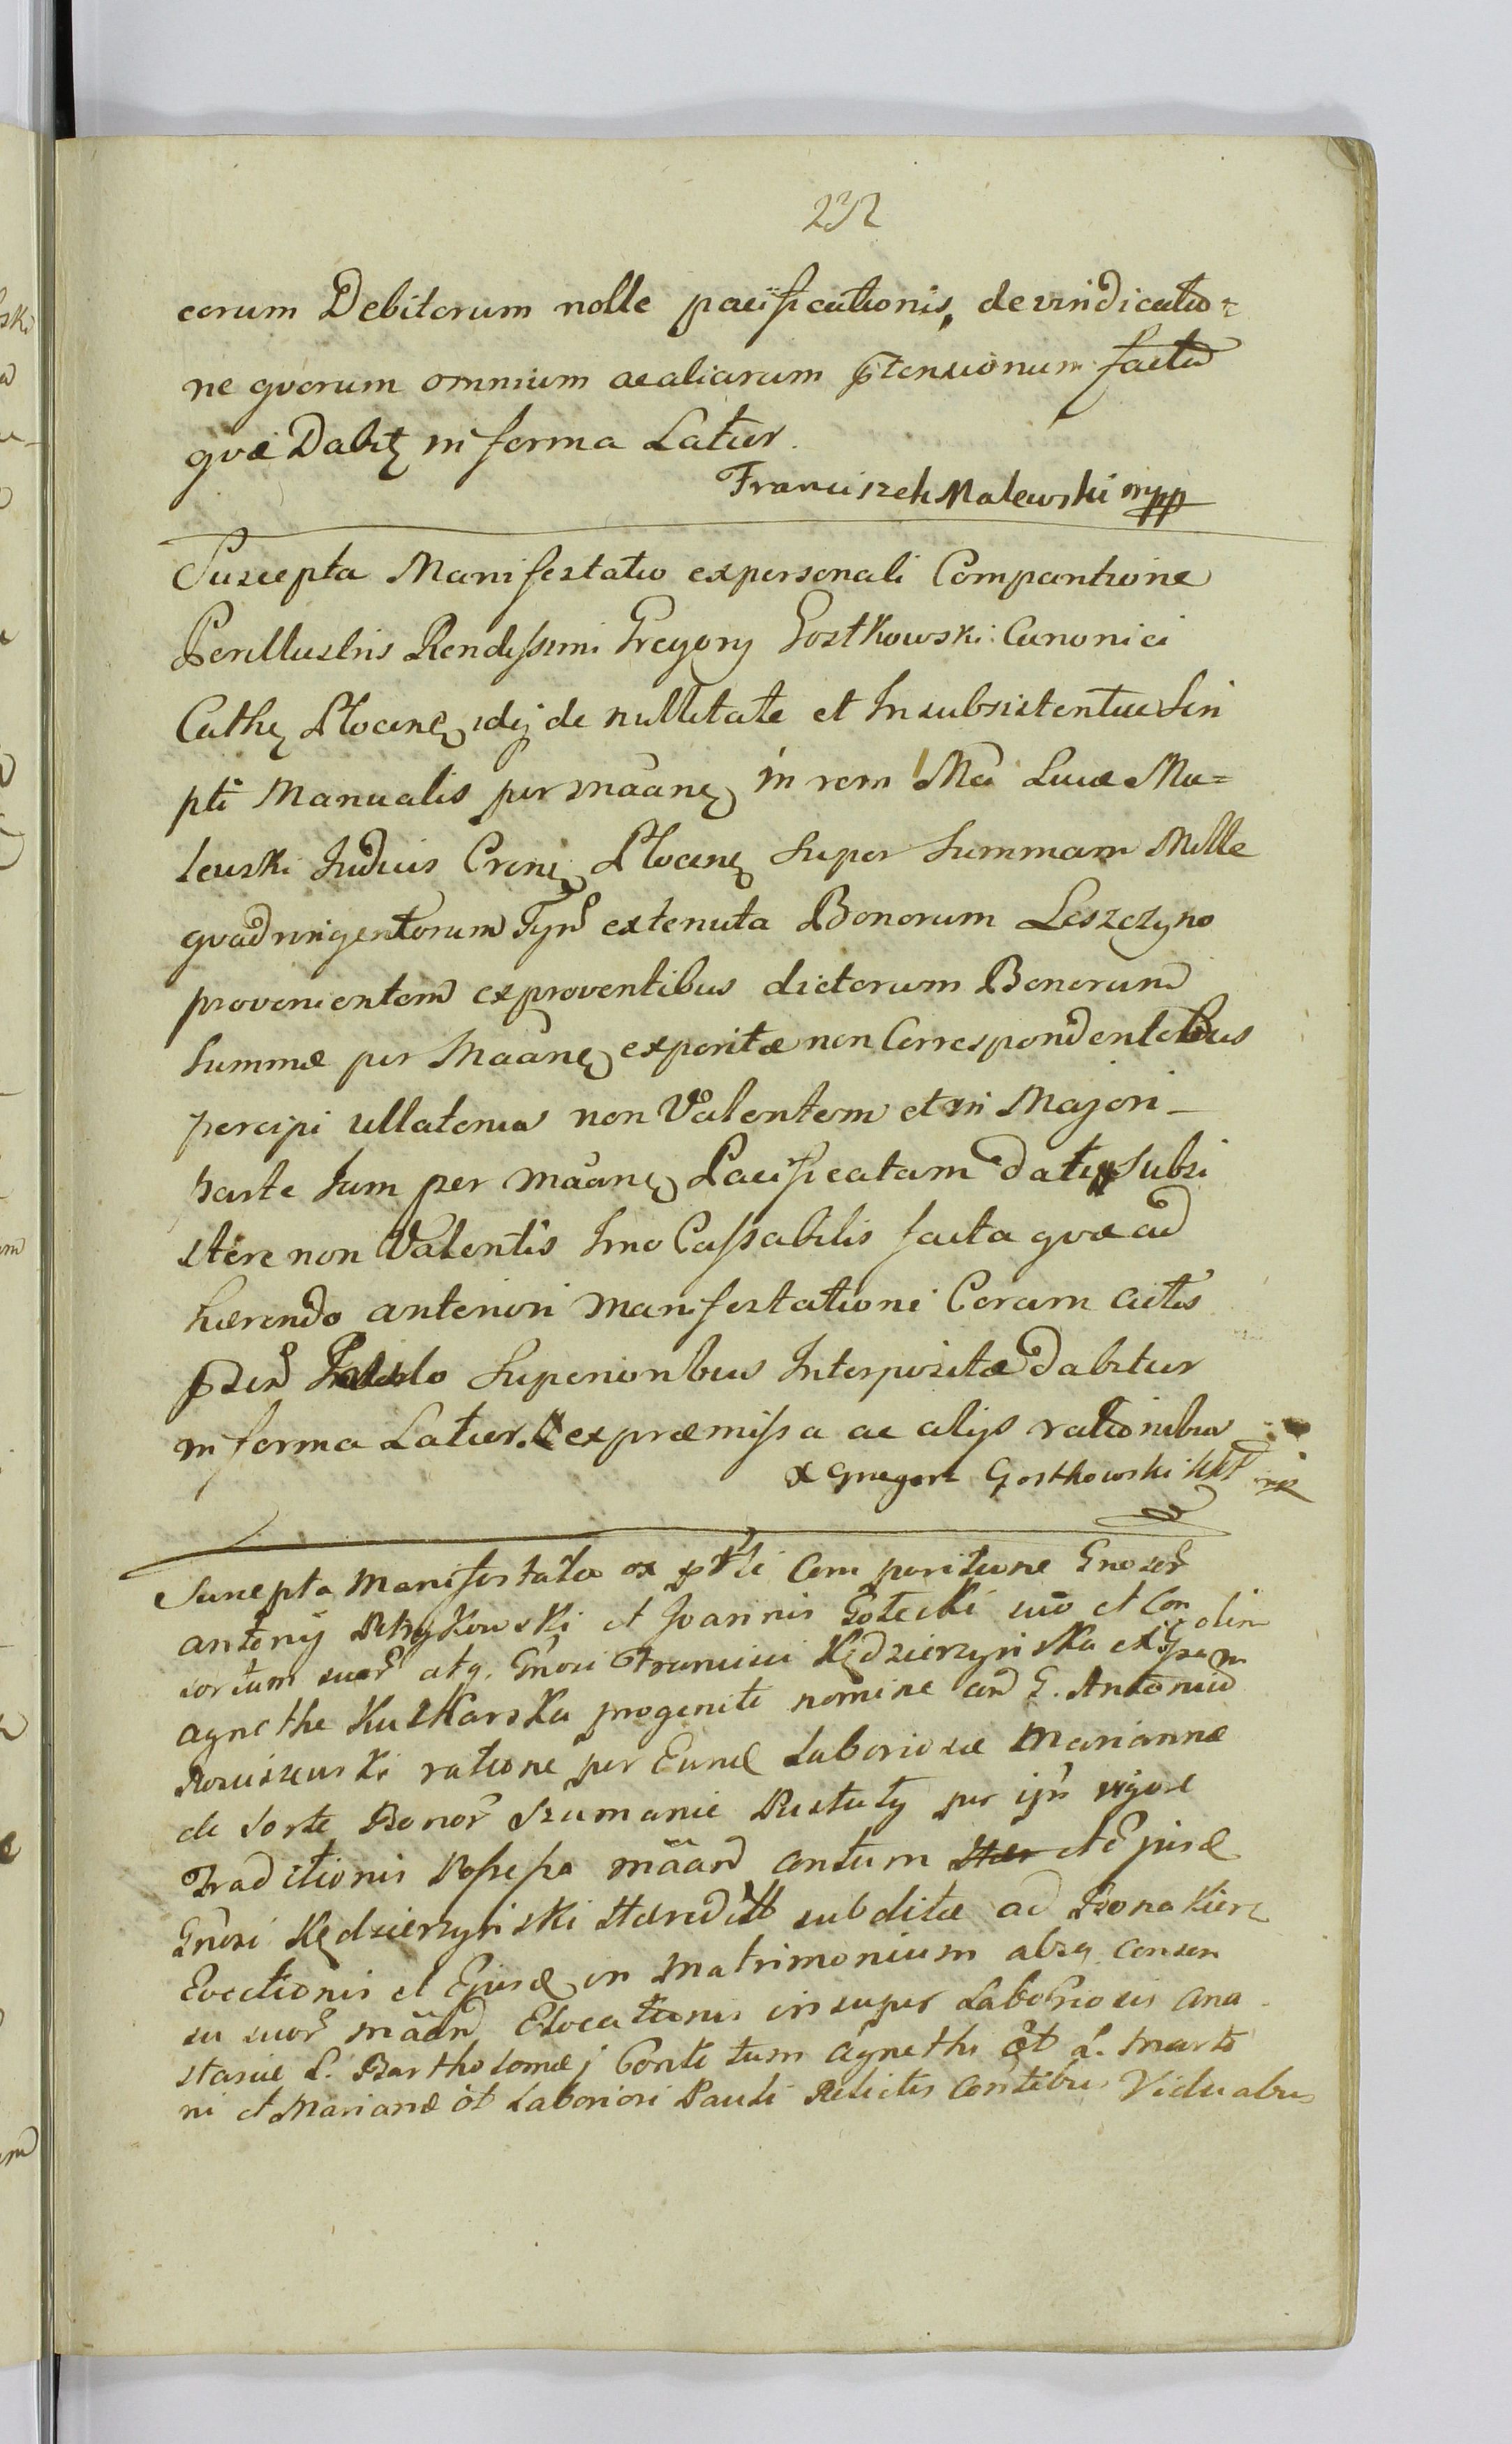 232
eorum Debitorum nolle pacificationis, de vindicatio=
ne qvorum omnium ac aliarum ptensionum facta
qvæ Dabit in forma Latior.
Franciszek Malewski mpp
Suscepta Manifestatio ex personali Comparitione
Perillustris Rendissimi Gregorij Gostkowski Canonici
Cathe Plocen idq de nullitate et Insubsistentia Scri
pti Manualis per maane in rem Mci Lucæ Ma=
lewski Judicis Crens Plocens Super Summam Mille
qvadringentorum Tyn ex tenuta Bonorum Leszczyno
provenientem ex proventibus dictorum Bonorum
Summæ per Maane expositæ non Correspondentibus
percipi ullatenus non Valentem et in Majori
parte Jam per maane Pacificatam dati Subsi
stere non Valentis Imo Cassabilis facta qvæ ad
hærendo anteriori Manifestationi Coram actis
Superioribus Interpositæ dabitur
in forma Latior. ex præmissa ac alijs rationibus
X Gregorz Gostkowski KKP mp
Suscepta Manifestatio ex psli Comparitione Gnosor
Antonij Petrykowski et Joannis Gotecki suo et Con
sortum suar atq. Gnosi Francisci Kędzierzynski ex G olim
Agnethe Kuskarska progeniti nomine ad G. Antonium
Rosciszewski ratione per Eund Laboriosæ Mariannæ
de sorte Bonor Szumanie Pustuty per ipn vigore
Tradictionis Possessa maand centum et Ejusd
Gnosi Kędzierzynski Hæredit subditæ ad Bona Kierz
Evectionis et Ejusd in Matrimonium absq consen
su suor maand Elocationis insuper Laboriosis Ana
stasiæ L. Bartholomæj Conti tum Agnethi ot L. Marti
ni et Mariand ot Laboriosi Pauli Relictis Contibus Viduabus